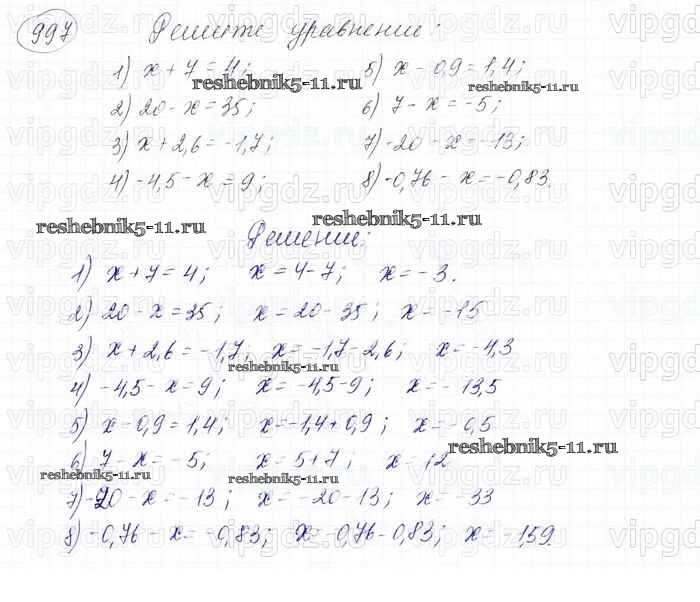 997 Решите уравнение:
1) x + 7 = 4; 5) x - 0,9 = 1,4;
2) 20 - x = 35; 6) 7 - x = -5;
3) x + 2,6 = -1,7; 7) -20 - x = -13;
4) -4,5 - x = 9; 8) -0,76 - x = -0,83.
reshebnik5-11.ru reshebnik5-11.ru
reshebnik5-11.ru reshebnik5-11.ru
Решение:
1) x + 7 = 4; x = 4 - 7; x = -3.
2) 20 - x = 35; x = 20 - 35; x = -15
3) x + 2,6 = -1,7, x = -1,7 - 2,6; x = -4,3
reshebnik5-11.ru
4) -4,5 - x = 9; x = -4,5 - 9; x = -13,5
5) x - 0,9 = 1,4; x = -1,4 + 0,9; x = -0,5
reshebnik5-11.ru
6) 7 - x = -5; x = 5 + 7; x = 12
reshebnik5-11.ru reshebnik5-11.ru
7) -20 - x = -13; x = -20 - 13; x = -33
8) -0,76 - x = -0,83; x = -0,76 - 0,83; x = -1,59.
vipgdz.ru